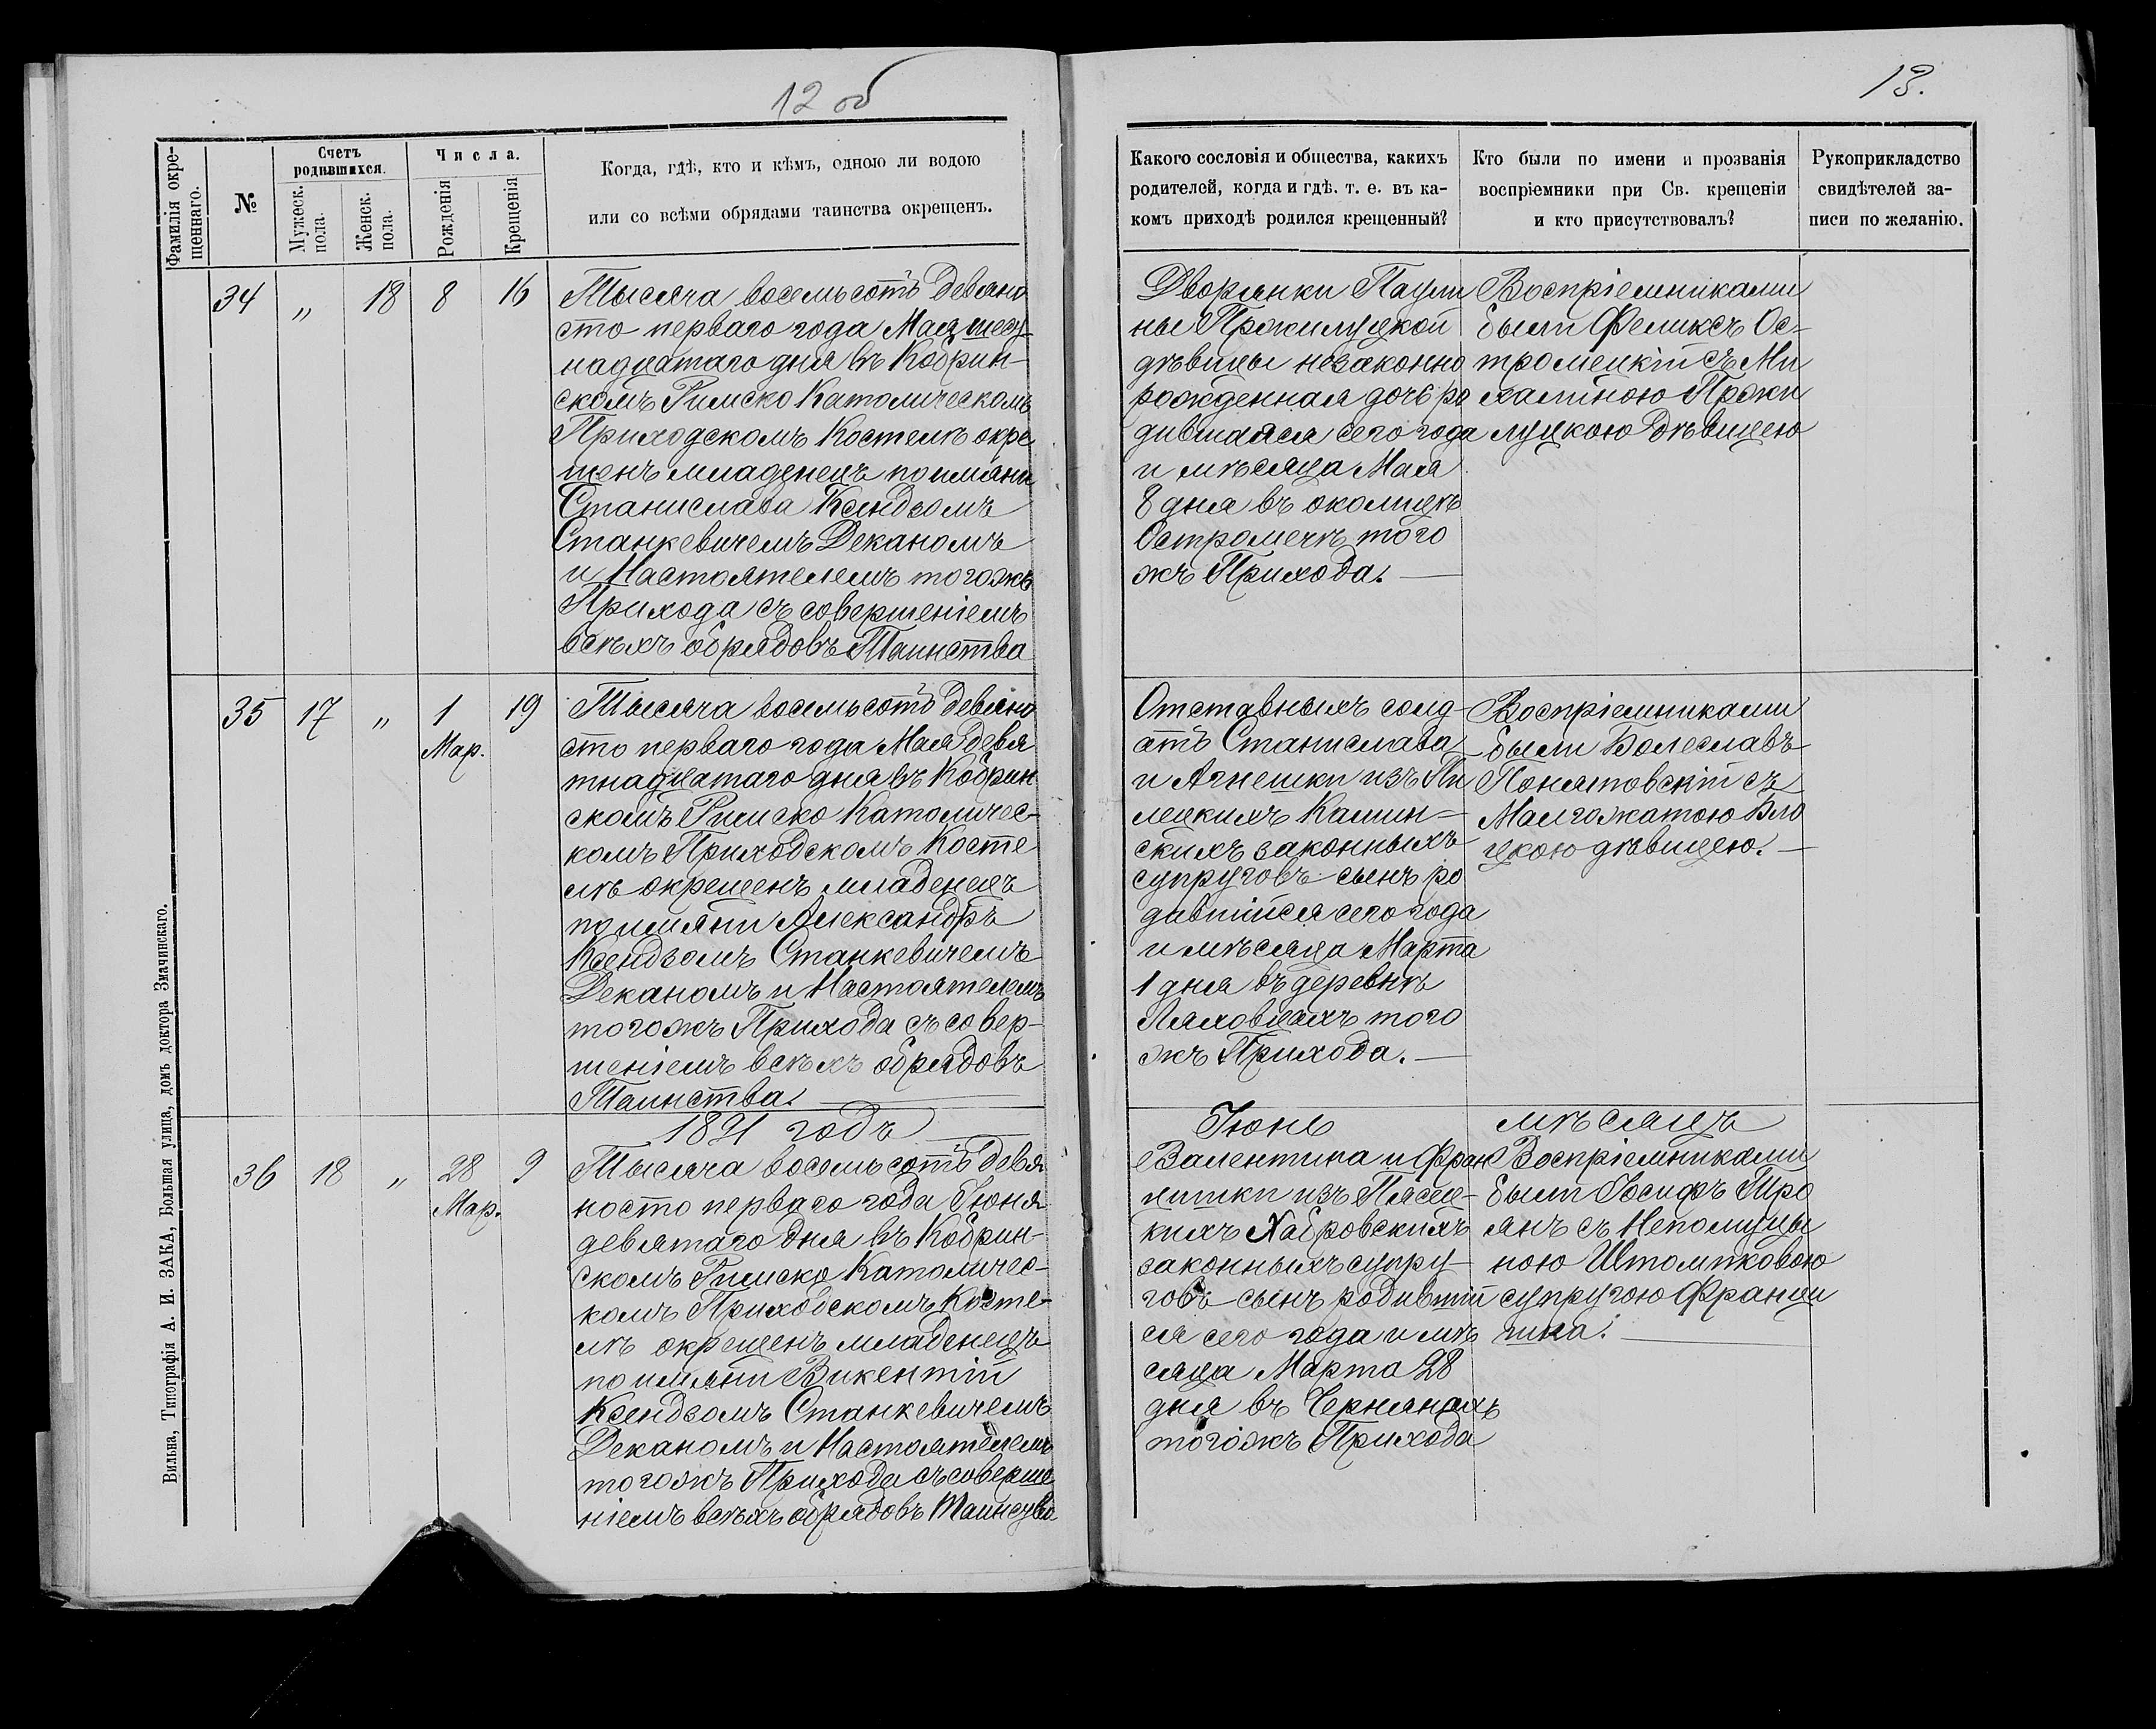 12 об
13.
Фамилія окре-
щеннаго.
№
Счетъ
родившихся.
Мужеск.
пола.
Женск.
пола.
Числа.
Рожденія
Крещенія
Когда, гдѣ, кто и кѣмъ, одною ли водою
или со всѣми обрядами таинства окрещенъ.
Какого сословія и общества, какихъ
родителей, когда и гдѣ. т. е. въ ка-
комъ приходѣ родился крещенный?
Кто были по имени и прозванія
воспріемники при Св. крещеніи
и кто присутствовалъ?
Рукоприкладство
свидѣтелей за-
писи по желанію.
34 " 18 8 16
Тысяча восемьсотъ девяно
сто перваго года Мая шест-
надцатаго дня въ Кобрин-
скомъ Римско Католическомъ
Приходскомъ Костелѣ окре
щенъ младенецъ по имяни
Станислава Ксендзомъ
Станкевичемъ Деканомъ
и Настоятелемъ тогожъ
Прихода съ совершеніемъ
всѣхъ обрядовъ Таинства
Дворянки Паули
ны Пржилуцкой
дѣвицы незаконно
рожденная дочь ро
дившаяся сего года
и мѣсяца Мая
8 дня въ околицѣ
Остромечѣ того
жъ Прихода.
Воспріемниками
были Феликсъ Ос-
тромецкій съ Ми
халиною Пржи
луцкою дѣвицею
35 17 " 1 19
Мар.
Тысяча восемьсотъ девяно
сто перваго года Мая девя
тнадцатаго дня въ Кобрин
скомъ Римско Католичес-
комъ Приходскомъ Косте
лѣ окрещенъ младенецъ
по имяни Александръ
Ксендзомъ Станкевичемъ
Деканомъ и Настоятелемъ
тогожъ Прихода съ совер-
шеніемъ всѣхъ обрядовъ
Таинства.
Отставныхъ солд-
атъ Станислава
и Агнешки изъ Пи
лецкихъ Камин-
скихъ законныхъ
супруговъ сынъ ро
дившійся сего года
и мѣсяца Марта
1 дня въ деревнѣ
Ляховцахъ того
жъ Прихода.
Воспріемниками
были Болеславъ
Понятовскій съ
Малгожатою Бло
цкою дѣвицею.
1891 годъ
Іюнь мѣсяцъ
36 18 " 28 9
Мар.
Тысяча восемьсотъ девя
носто перваго года Іюня
девятаго дня въ Кобрин-
скомъ Римско Католичес-
комъ Приходскомъ Косте-
лѣ окрещенъ младенецъ
по имяни Викентій
Ксендзомъ Станкевичемъ
Деканомъ и Настоятелемъ
тогожъ Прихода съ соверше
ніемъ всѣхъ обрядовъ Таинства
Валентина и Фран
цишки изъ Пясец-
кихъ Хабровскихъ
законныхъ супру-
говъ сынъ родившій
ся сего года и мѣ
сяца Марта 28
дня въ Чернянахъ
тогожъ Прихода
Воспріемниками
были Іосифъ Тро
янъ съ Непомуцы
ною Штомпковою
супругою Франци
шка.
Вильна, Типографія А. И. ЗАКА, Большая улица, домъ доктора Змачинскаго.